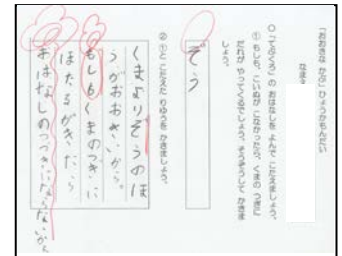 「おおきな かぶ」ひょうかもんだい
なまえ
○「てぶくろ」の おはなしを よんで こたえましょう。
① もしも、こいぬが こなかったら、くまの つぎに
だれが やってくるでしょう。そうぞうして かきま
しょう。
ぞう
② ①と こたえた りゆうを かきましょう。
くまよりぞうのほ
うがおおきいから。
もしもくまのつぎに
ほたるがきたら
おはなしのつづきにならないから